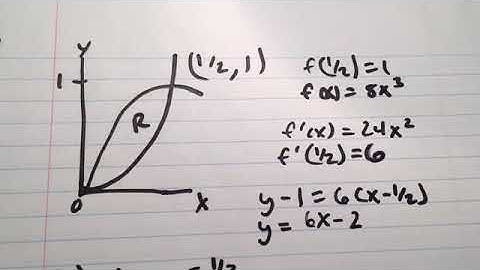 y
1
(1/2, 1)
R
0
x
f(1/2) = 1
f(x) = 8x³
f'(x) = 24x²
f'(1/2) = 6
y - 1 = 6(x - 1/2)
y = 6x - 2
= 1/2